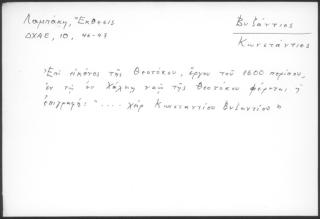 Λαμπάκη, Ἔκθεσις
ΔΧΑΕ, 10, 46-47
Βυζάντιος
Κωνστάντιος
"Ἐπὶ εἰκόνος τῆς Θεοτόκου, ἔργου τοῦ 1600 περίπου,
ἐν τῷ ἐν Χάλκῃ ναῷ τῆς Θεοτόκου φέρεται ἡ
ἐπιγραφή: ".... χεὶρ Κωνσταντίου Βυζαντίου"